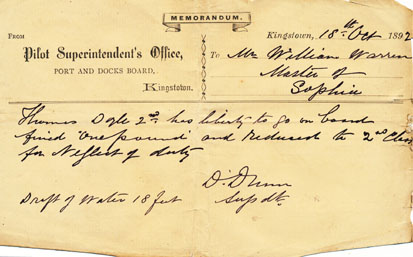 MEMORANDUM.
Kingstown, 18th Oct 1892
FROM
Pilot Superintendent's Office,
PORT AND DOCKS BOARD,
Kingstown.
To Mr William Warren
Master of
Sophia
Thomas Doyle 2nd has liberty to go on board
fined 'One pound' and reduced to 2nd Class
for Neglect of duty
D. Dunn
Supdt.
Draft of Water 18 feet